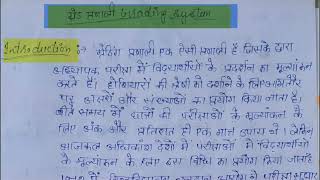 ग्रेड प्रणाली Grading System
Introduction :- ग्रेडिंग प्रणाली एक ऐसी प्रणाली है जिसके द्वारा
अध्यापक परीक्षा में विद्यार्थियों के प्रदर्शन का मूल्यांकन
करते हैं। होशियारी की श्रेणी को दर्शाने के लिए आमतौर
पर अक्षरों और संख्याओं का प्रयोग किया जाता है।
बीते समय में छात्रों की परीक्षाओं के मूल्यांकन के
लिए अंक और प्रतिशत ही एक मात्र उपाय थे। लेकिन
आजकल अधिकांश देशों में परीक्षाओं में विद्यार्थियों
के मूल्यांकन के लिए इस विधि का प्रयोग किया जाता है
विश्वविद्यालय अनुदान आयोग ने परीक्षा सुधार